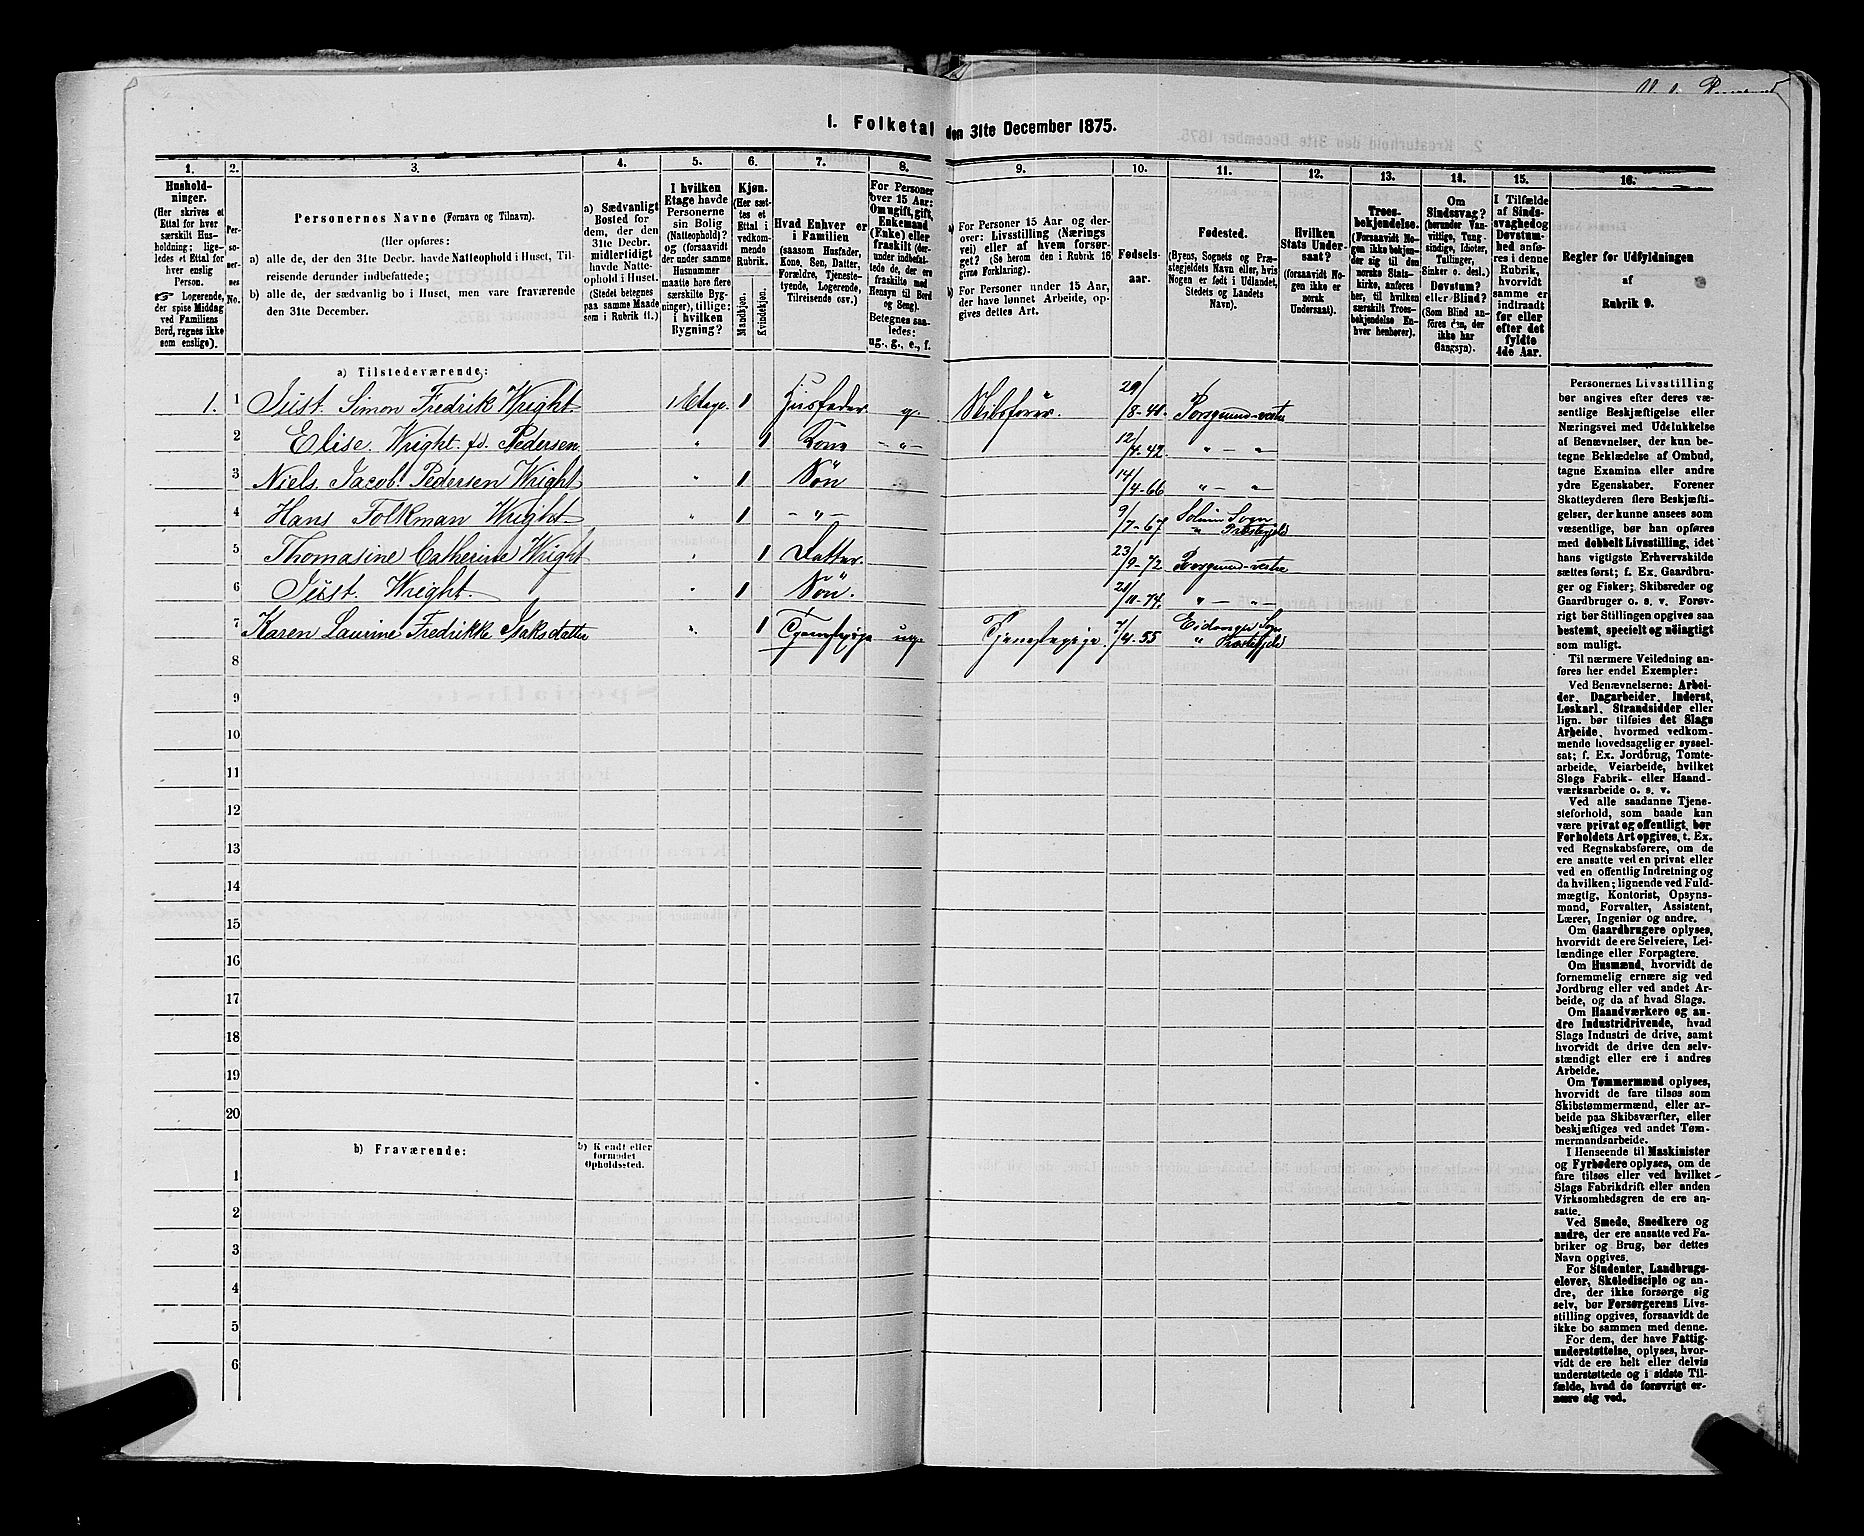 I. Folketal den 31te December 1875.
1. 2. 3. 4. 5. 6. 7. 8. 9. 10. 11. 12. 13. 14. 15. 16.
Hushold-
ninger.
(Her skrives et
Ettal for hver
særskilt Hus-
holdning; lige-
ledes et Ettal for
hver enslig
Person.
☞ Logerende,
der spise Middag
ved Familiens
Bord, regnes ikke
som enslige).
Per-
so-
ner-
nes
No.
Personernes Navne (Fornavn og Tilnavn).
(Her opføres:
a) alle de, der den 31te Decbr. havde Natteophold i Huset, Til-
reisende derunder indbefattede;
b) alle de, der sædvanlig bo i Huset, men vare fraværende
den 31te December.
a) Sædvanligt
Bosted for
dem, der den
31te Decbr.
midlertidigt
havde Natte-
ophold i Huset.
(Stedet betegnes
paa samme Maade
som i Rubrik 11.)
I hvilken
Etage havde
Personerne
sin Bolig
(Natteophold)?
og (forsaavidt
der under samme
Husnummer
maatte høre flere
særskilte Byg-
ninger), tillige:
i hvilken
Bygning?
Kjøn.
(Her sæt-
tes et
Ettal i
vedkom-
mende
Rubrik.
Mandkjøn.
Kvindekjøn.
Hvad Enhver er
i Familien
(saasom Husfader,
Kone, Søn, Datter,
Forældre, Tjeneste-
tyende, Logerende,
Tilreisende osv.)
For Personer
over 15 Aar:
Om ugift, gift,
Enkemand
(Enke) eller
fraskilt (der-
under indbefat-
tede de, der ere
fraskilte med
Hensyn til Bord
og Seng).
Betegnes saa-
ledes:
ug., g., e., f.
a) For Personer 15 Aar og der-
over: Livsstilling (Nærings
vei) eller af hvem forsør-
get? (Se herom den i Rubrik 16
givne Forklaring).
b) For Personer under 15 Aar,
der have lønnet Arbeide, op-
gives dettes Art.
Fødsels-
aar.
Fødested.
(Byens, Sognets og Præ-
stegjeldets Navn eller, hvis
Nogen er født i Udlandet,
Stedets og Landets
Navn).
Hvilken
Stats Under-
saat?
(forsaavidt No-
gen ikke er
norsk
Undersaat).
Troes-
bekjendelse.
(Forsaavidt No-
gen ikke bekjen-
der sig til den
norske Stats-
kirke, anføres
her, til hvilken
særskilt Troes-
bekjendelse En-
hver henhører).
Om
Sindssvag?
(herunder Van-
vittige, Tung-
sindige, Idioter,
Tullinger,
Sinker o. desl.)
Døvstum?
eller Blind?
(Som Blind an-
føres den, der
ikke har
Gangsyn).
I Tilfælde
af Sinds-
svaghed og
Døvstum-
hed anfø-
res i denne
Rubrik,
hvorvidt
samme er
indtraadt
før eller
efter det
fyldte
4de Aar.
Regler for Udfyldningen
af
Rubrik 9.
a) Tilstedeværende:
1. 1 Just Simon Fredrik Wright 1 Etage. 1 Husfader. g. Skibsfører 29/8-40. Porsgrund-vestre
2 Elise Wright fd. Pedersen " 1 Kone - " - 12/7-42 " - "
3 Niels Jacob Pedersen Wright " 1 Søn 14/4-66 " - "
4 Hans Folkman Wright " 1 - " - 9/7-67 Solum Sogn
" Præstegjeld
5 Thomasine Cathrine Wright " 1 Datter. 23/9-72 Porsgrund-vestre
6 Just Wright " 1 Søn. 21/11-74. " - "
7 Karen Laurine Fredrikke Isaksdatter " 1 Tjenestepige ug. Tjenestepige. 7/4-55 Eidanger Sogn
" Præstegjeld
8
9
10
11
12
13
14
15
16
17
18
19
20
b) Fraværende:
b) Kjendt eller
formodet
Opholdssted.
1
2
3
4
5
6
Personernes Livsstilling
bør angives efter deres væ-
sentlige Beskjæftigelse eller
Næringsvei med Udelukkelse
af Benævnelser, der kun be-
tegne Beklædelse af Ombud,
tagne Examina eller andre
ydre Egenskaber. Forener
Skatteyderen flere Beskjæfti-
gelser, der kunne ansees som
væsentlige, bør han opføres
med dobbelt Livsstilling, idet
hans vigtigste Erhvervskilde
sættes først; f. Ex. Gaardbru-
ger og Fisker; Skibsreder og
Gaardbruger o. s. v. Forøv-
rigt bør Stillingen opgives saa
bestemt, specielt og nøiagtigt
som muligt.
Til nærmere Veiledning an-
føres her endel Exempler:
Ved Benævnelserne: Arbei-
der, Dagarbeider, Inderst,
Løskarl, Strandsidder eller
lign. bør tilføies det Slags
Arbeide, hvormed vedkom-
mende hovedsagelig er syssel-
sat; f. Ex. Jordbrug, Tomte-
arbeide, Veiarbeide, hvilket
Slags Fabrik- eller Haand-
værksarbeide o. s. v.
Ved alle saadanne Tjene-
steforhold, som baade kan
være privat og offentligt, bør
Forholdets Art opgives, t. Ex.
ved Regnskabsførere, om de
ere ansatte ved en privat eller
ved en offentlig Indretning og
da hvilken; lignende ved Fuld-
mægtig, Kontorist, Opsyns-
mand, Forvalter, Assistent,
Lærer, Ingeniør og andre.
Om Gaardbrugere oplyses,
hvorvidt de ere Selveiere, Lei-
lændinge eller Forpagtere.
Om Husmænd, hvorvidt de
fornemmelig ernære sig ved
Jordbrug eller ved andet Ar-
beide, og da af hvad Slags.
Om Haandværkere og an-
dre Industridrivende, hvad
Slags Industri de drive, samt
hvorvidt de drive den selv-
stændigt eller ere i andres
Arbeide.
Om Tømmermænd oplyses,
hvorvidt de fare tilsøs som
Skibstømmermænd, eller ar-
beide paa Skibsværfter, eller
beskjæftiges ved andet Tøm-
mermandsarbeide.
I Henseende til Maskinister
og Fyrbødere oplyses, om de
fare tilsøs eller ved hvilket
Slags Fabrikdrift eller anden
Virksomhedsgren de ere an-
satte.
Ved Smede, Snedkere og
andre, der ere ansatte ved Fa-
briker og Brug, bør dettes
Navn opgives.
For Studenter, Landbrugs-
elever, Skoledisciple og an-
dre, der ikke forsørge sig
selv, bør Forsørgerens Livs-
stilling opgives, forsaavidt de
ikke bo sammen med denne.
For dem, der have Fattig-
understøttelse, oplyses, hvor-
vidt de ere helt eller delvis
understøttede og i sidste Til-
fælde, hvad de forøvrigt er-
nære sig ved.